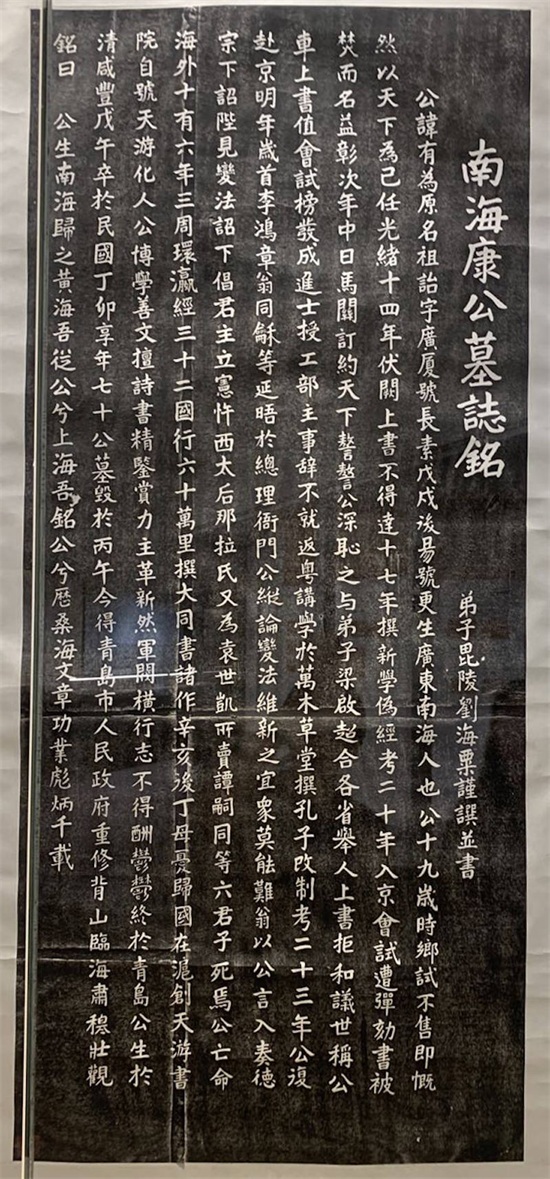 南海康公墓誌銘
弟子毘陵劉海粟謹譔並書
公諱有為原名祖詒字廣厦號長素戊戌後易號更生廣東南海人也公十九歲時鄉試不售即慨
然以天下為己任光緒十四年伏闕上書不得達十七年撰新學偽經考二十年入京會試遭彈劾書被
焚而名益彰次年中日馬關訂約天下嗸嗸公深恥之与弟子梁啟超合各省舉人上書拒和議世稱公
車上書值會試榜發成進士授工部主事辞不就返粵講學於萬木草堂撰孔子改制考二十三年公復
赴京明年歲首李鴻章翁同龢等延晤於總理衙門公縱論變法維新之宜衆莫能難翁以公言入奏德
宗下詔陛見變法詔下倡君主立憲忤西太后那拉氏又為袁世凱所賣譚嗣同等六君子死焉公亡命
海外十有六年三周環瀛經三十二國行六十萬里撰大同書諸作辛亥後丁母憂歸國在滬創天游書
院自號天游化人公博學善文擅詩書精鑒賞力主革新然軍閥橫行志不得酬鬱鬱終於青島公生於
清咸豐戊午卒於民國丁卯享年七十公墓毀於丙午今得青島市人民政府重修背山臨海肅穆壯觀
銘曰　公生南海歸之黃海吾從公兮上海吾銘公兮歷桑海文章功業彪炳千載